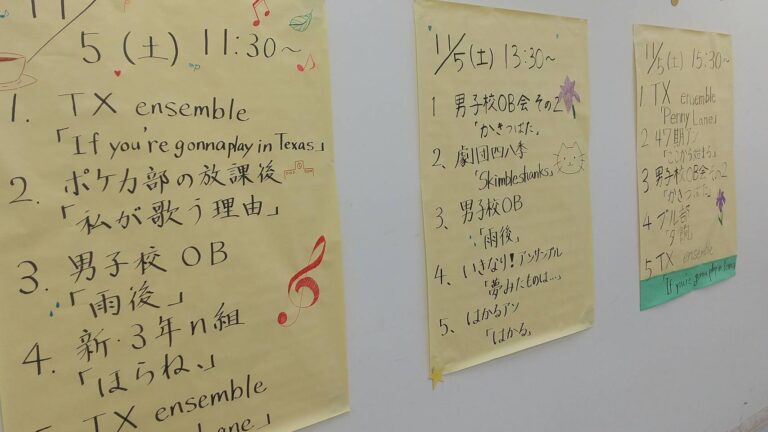 11/
5(土) 11:30~
1. TX ensemble
「If you're gonna play in Texas」
2. ポケカ部の放課後
「私が歌う理由」
3. 男子校 OB
「雨後」
4. 新・3年n組
「ほらね、」
TX ensemble
Lane」
11/5(土) 13:30~
1 男子校OB会 その2
「かきつばた」
2、劇団四八季
「Skimbleshanks」
3、男子校OB
「雨後」
4、いきなり!アンサンブル
「夢みたものは...」
5、はかるアン
「はかる」
11/5(土) 15:30~
1 TX ensemble
「Penny Lane」
2 47期アン
「ここから始まる」
3 男子校OB会 その2
「かきつばた」
4 ブル部
5 TX ensemble
「If you're gonna play in Texas」